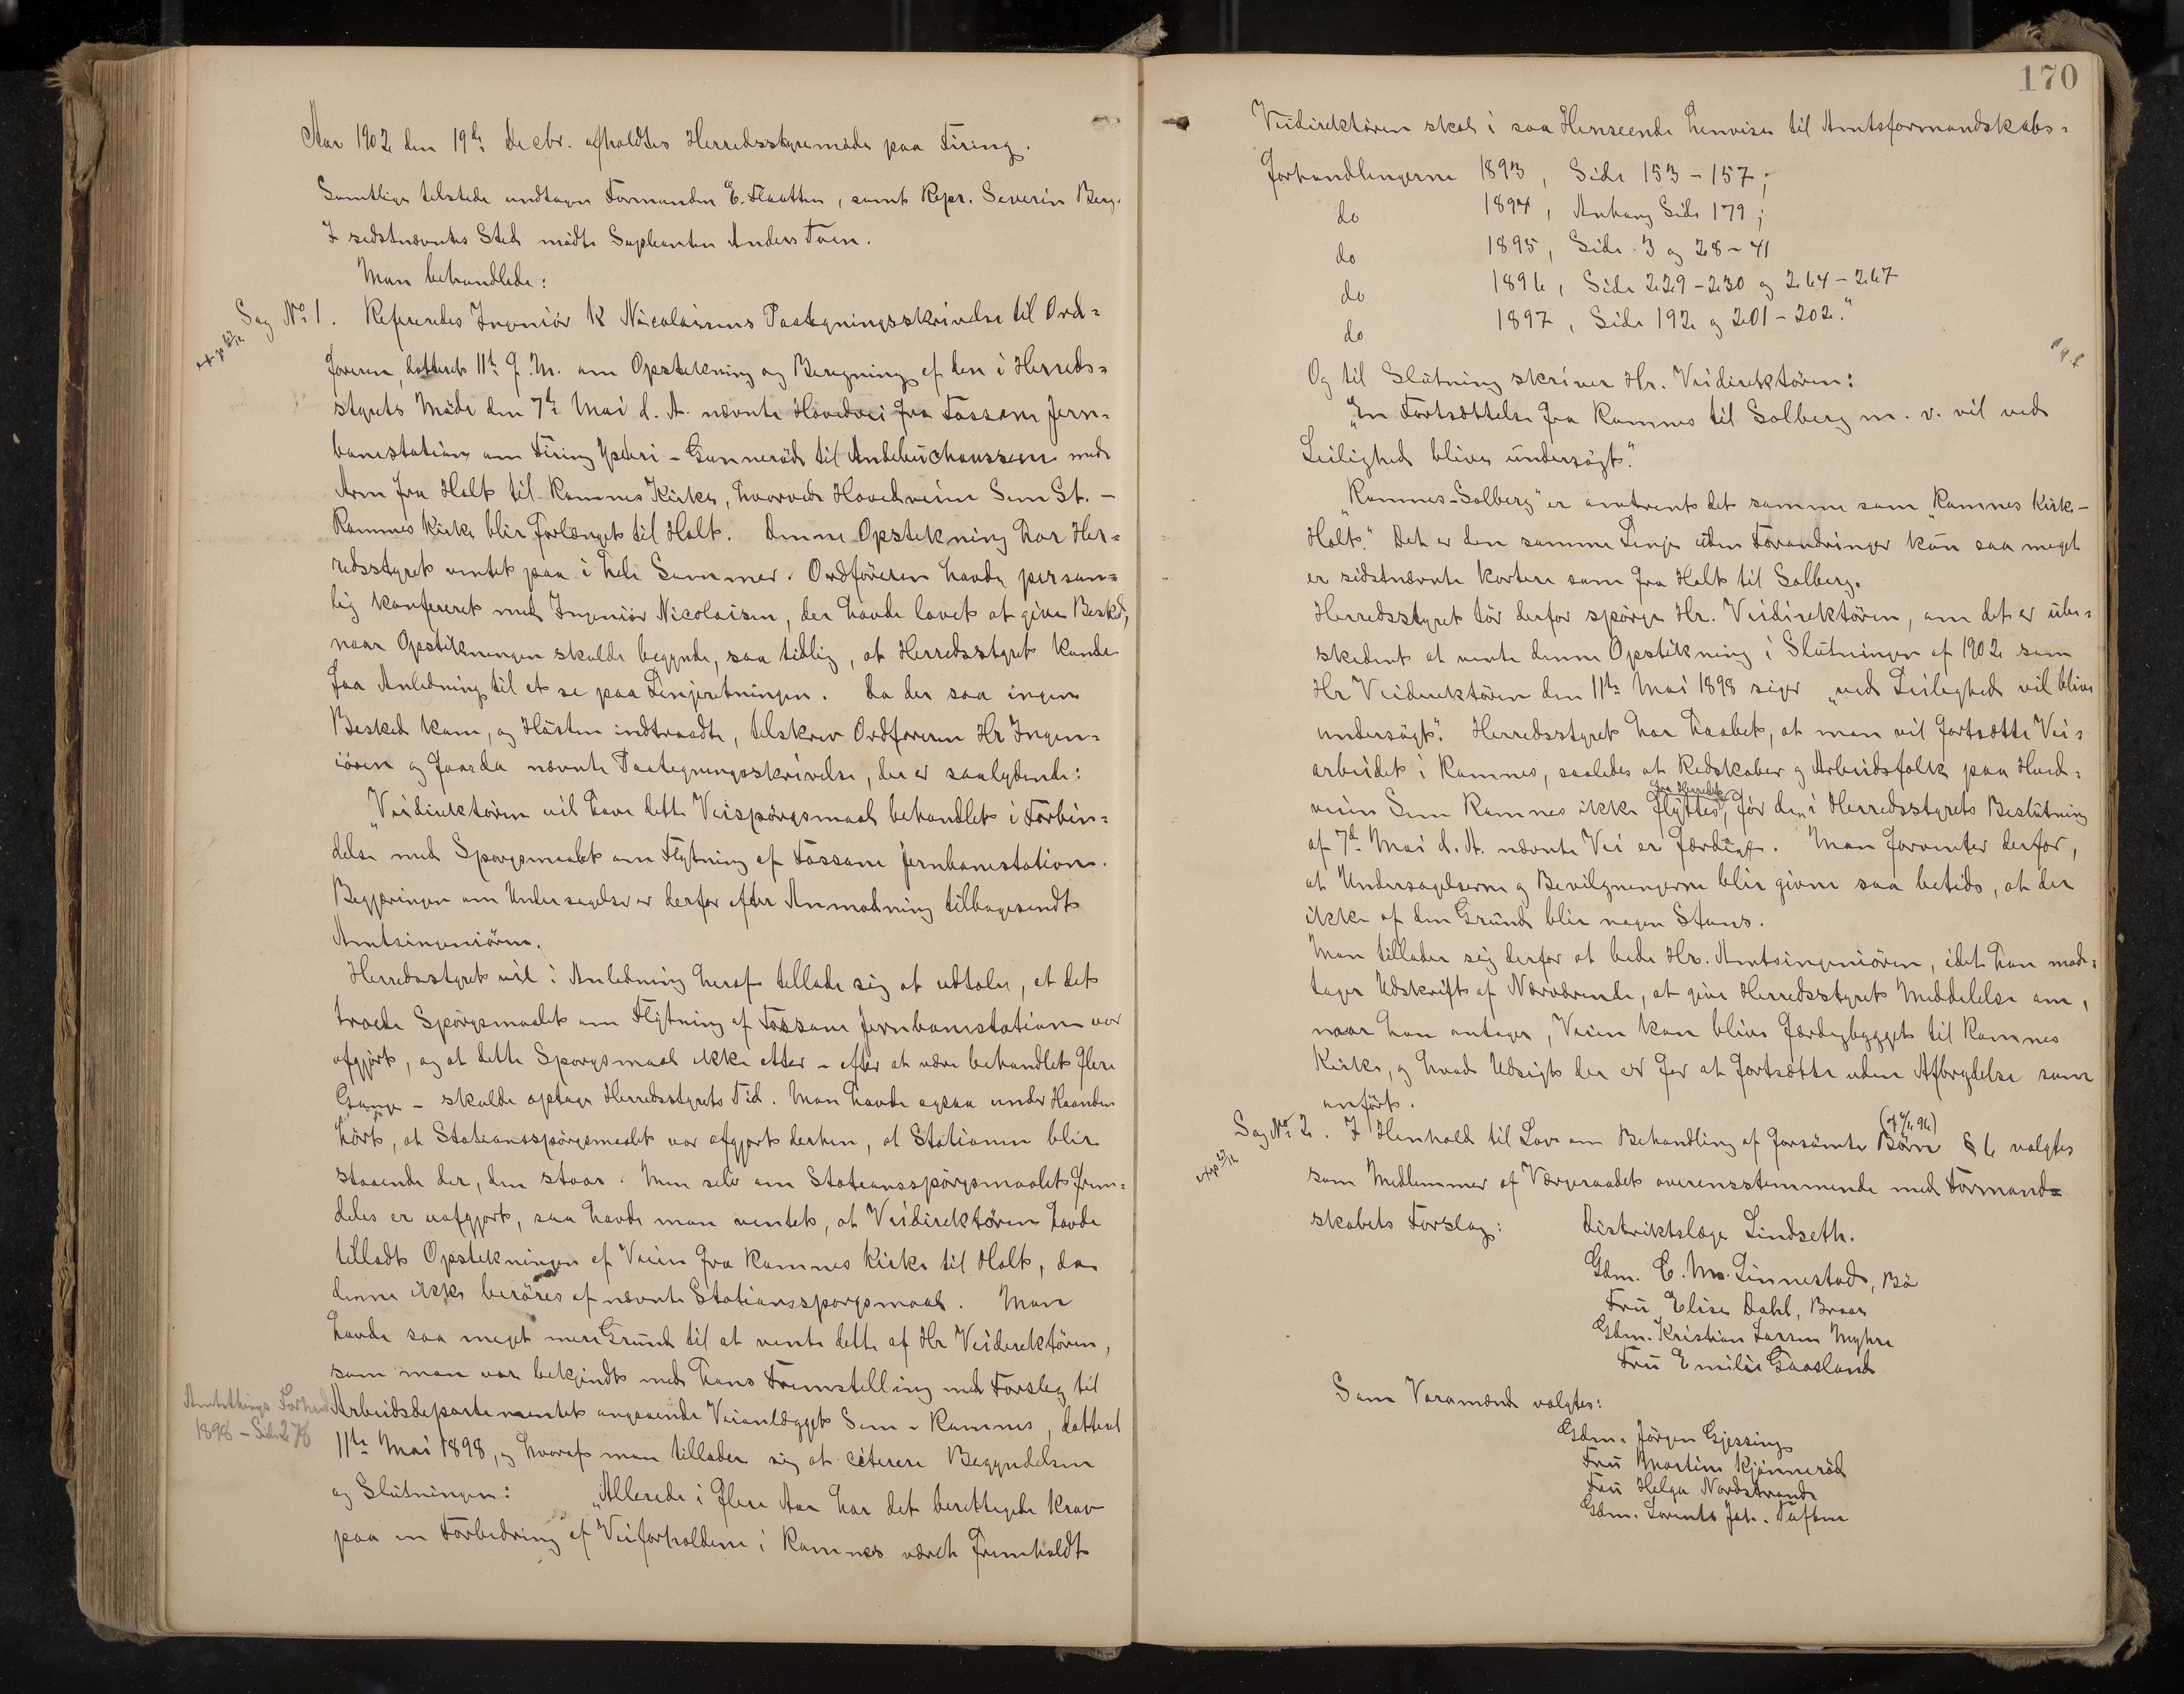 Aar 1902 den 19de Decbr. afholdtes Herredsstyremöde paa Firing.
Samtlige tilstede undtagen Formanden E. Flaatten, samt Repr. Severin Berg.
I sidstnævntes Sted mödte Supleanten Anders Foen.
Man behandlede:
Sag No 1. Refereredes Ingeniör K Nicolaisens Paategningsskrivelse til Ord=
exp 27/12
föreren, datteret 11te ds. M. om Opstikning og Beregning af den i Herreds=
styrets Möde den 7de Mai d. A. nævnte Hovedvei fra Fossane Jern=
banestation om Firing Ysteri - Gunneröd til Andebuchausseen med
Arm fra Holt til Ramnes Kirke, hvorved Hovedveien Sem St. -
Ramnes Kirke blir forlænget til Holt. Denne Opstikning har Her=
redsstyret ventet paa i hele Sommer. Ordföreren havde person=
lig konfereret med Ingeniör Nicolaisen, der havde lovet at give Besked,
naar Opstikningen skulde begynde, saa tidlig, at Herredsstyret kunde
faa Anledning til at se paa Linjeretningen. Da der saa ingen
Besked kom, og Hösten indtraadte, tilskrev Ordföreren Hr Ingen=
iören og faar da nævnte Paategningsskrivelse, der er saalydende:
"Veidirektören vil have dette Veispörgsmaal behandlet i Forbin=
delse med Spørgsmaalet om Flytning af Fossane Jernbanestation.
Begjæringen om Undersøgelse er derfor efter Anmodning tilbagesendt
Amtsingeniören.
Herredsstyret vil i Anledning heraf tillade sig at udtale, at det
troede Spörgsmaalet om Flytning af Fossane Jernbanestation var
afgjört, og at dette Spørgsmaal ikke atter - efter at være behandlet flere
Gange - skulde optage Herredsstyrets Tid. Man havde ogsaa under Haanden
hört, at Stationsspörgsmaalet var afgjort derhen, at Stationen blir
staaende der, den staar. Men selv om Stationsspörgsmaalet frem=
deles er uafgjort, saa havde man ventet, at Veidirektören havde
tilladt Opstikningen af Veien fra Ramnes Kirke til Holt, da
denne ikke beröres af nævnte Stationsspørgsmaal. Man
havde saa meget mere Grund til at vente dette af Hr Veidirektören,
som man var bekjendt med hans Fremstilling med Forslag til
Amtsthings Forhand
1898 - Side 278
Arbeidsdepartementet angaaende Veianlægget Sem - Ramnes, datteret
11te Mai 1898, og hvoraf man tillader sig at citerere Begyndelsen
og Slutningen: "Allerede i flere Aar har det berettigede Krav
paa en Forbedring af Veiforholdene i Ramnes været fremholdt
170
Veidirektören skal i saa Henseende henvise til Amtsformandskabs=
forhandlingerne 1893, Side 153 - 157;
do 1894, Anhang Side 179;
do 1895, Side 3 og 28 - 41
do 1896, Side 229 - 230 og 264 - 267
do 1897, Side 192 og 201 - 202."
Og til Slutning skriver Hr. Veidirektören:
"En Fortsættelse fra Ramnes til Solberg m. v. vil ved
Leilighed blive undersögt."
"Ramnes-Solberg" er omtrent det samme som "Ramnes Kirke -
Holt." Det er den samme Linje uden Forandringer kun saa meget
er sidstnævnte kortere som fra Holt til Solberg.
Herredsstyret tör derfor spörge Hr. Veidirektören, om det er übe=
skedent at vente denne Opstikning i Slutningen af 1902 som
Hr Veidirektören den 11te Mai 1898 siger "ved Leilighed vil blive
undersögt." Herredsstyret har haabet, at man vil fortsætte Vei=
arbeidet i Ramnes, saaledes at Redskaber og Arbeidsfolk paa Hoved=
veien Sem Ramnes ikke flyttes fra Herredet, för den i Herredsstyrets Beslutning
af 7de Mai d. A. nævnte Vei er færdig. Man forventer derfor,
at Undersøgelserne og Bevilgningerne blir givne saa betids, at der
ikke af den Grund blir nogen Stans.
Man tillader sig derfor at bede Hr. Amtsingeniören, idet han mod=
tager Udskrift af Nærværende, at give Herredsstyret Meddelelse om,
naar han antager, Veien kan blive færdigbygget til Ramnes
Kirke, og hvad Udsigt der er for at fortsætte uden Afbrydelse som
anfört.
Sag No 2. I Henhold til Lov om Behandling af forsömte Börn (af 6/6 96) § 6 valgtes
exp 27/12
som Medlemmer af Værgeraadet overensstemmende med Formand=
skabets Forslag: Distriktslæge Lindseth.
Gdm. C. M. Linnestad, Bö
Fru Elise Dahl, Braar
Gdm. Kristian Larsen Myhre
Fru Emilie Gaasland
Som Varamænd valgtes:
Gdm. Jörgen Gjessing
Fru Martine Kjönneröd
Fru Helga Nordstrand
Gdm. Lorents Joh. Tufone